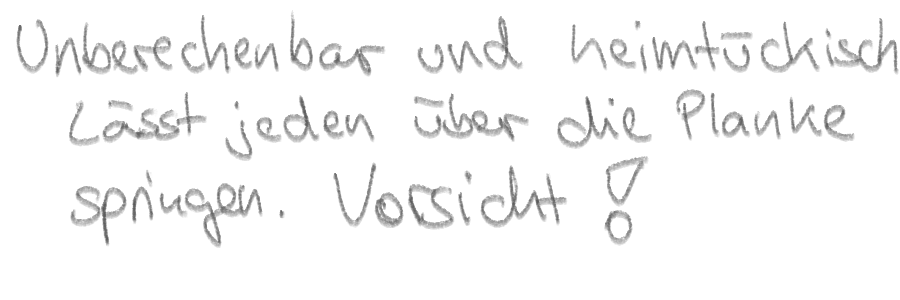 Unberechenbar und heimtückisch
Lässt jeden über die Planke
springen. Vorsicht!